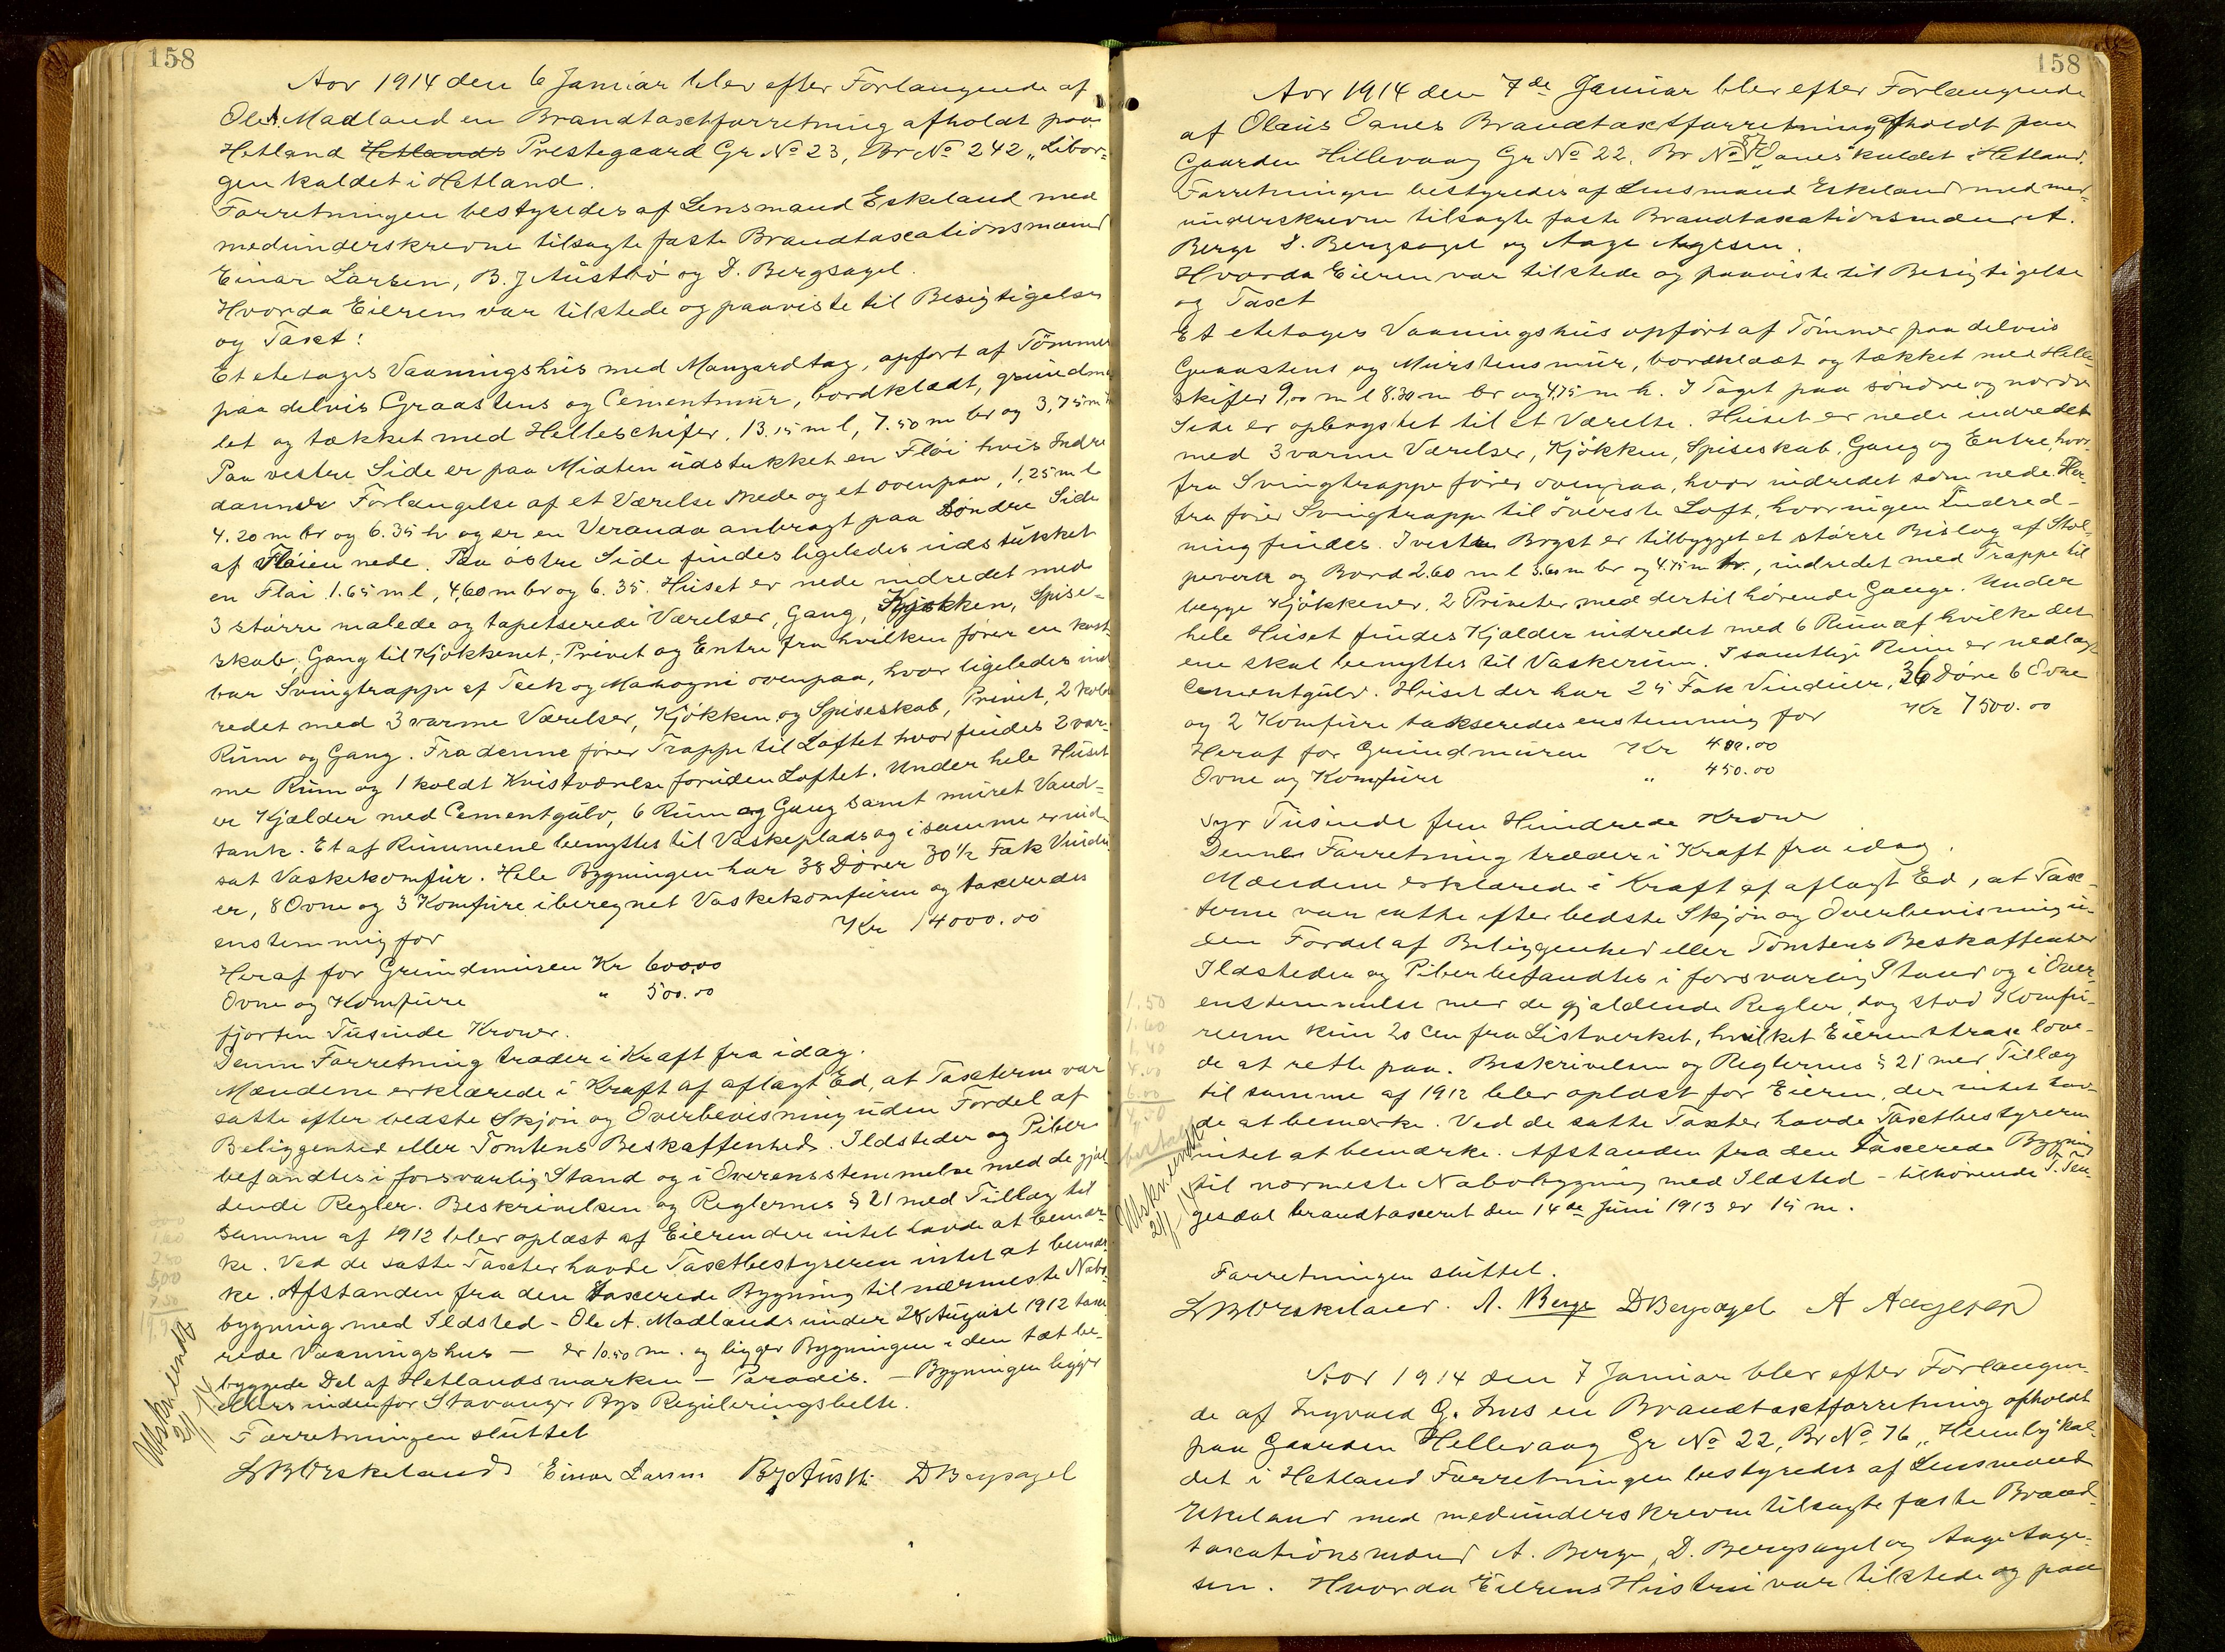 158
Aar 1914 den 6 Januar blev efter Forlangende af
Ole A. Madland en Brandtaxtforretning afholdt paa
Hetland Hetlands Prestegaard Gr No 23, Br No 242 „Libor-
gen kaldet i Hetland.
Forretningen bestyredes af Lensmand Eskeland med
medunderskrevne tilsagte faste Brandtaxationsmænd
Einar Larsen, B. J Austbö og D. Bergsagel.
Hvorda Eieren var tilstede og paaviste til Besigtigelse
og Taxt:
Et etetages Vaaningshus med Manzardtag, opfört af Tömmer
paa delvis Graastens og Cementmur, bordklædt, grundma-
let og tækket med Helleschifer, 13.15 m l, 7.50 m br og 3,75 m h
Paa vestre Side er paa Midten udstukket en Flöi hvis Indre
danner Forlængelse af et Værelse Nede og et ovenpaa, 1,25 m l
4.20 m br og 6.35 h og er en Veranda anbragt paa Söndre Side
af Flöien nede. Paa östre Side findes ligeledes udstukket
en Flöi 1.65 m l, 4,60 m br og 6.35. Huset er nede indredet med
3 större malede og tapetserede Værelser, Gang, Kjökken, Spise-
skab, Gang til Kjökkenet, Privet og Entre fra hvilken förer en kost-
bar Svingtrappe af Teek og Mahogni ovenpaa, hvor ligeledes ind-
redet med 3 varme Værelser, Kjökken og Spiseskab, Privet, 2 kolde
Rum og Gang. Fra denne förer Trappe til Loftet hvor findes 2 var-
me Rum og 1 koldt Kvistværelse foruden Loftet. Under hele Huset
er Kjælder med Cementgulv, 6 Rum og Gang samt muret Vand-
tank. Et af Rummene benyttes til Vaskeplads og i samme er ind-
sat Vaskekomfur. Hele Bygningen har 38 Dörer 30 1/2 Fak Vindu-
er, 8 Ovne og 3 Komfure iberegnet Vaskekomfuren og taxeredes
enstemmig for Kr 14000.00
Heraf for Grundmuren Kr 600.00
Ovne og Komfure " 500.00
fjorten Tusinde Kroner.
Denne Forretning træder i Kraft fra idag.
Mændene erklærede i Kraft af aflagt Ed, at Taxterne var
satte efter bedste Skjön og Overbevisning uden Fordel af
Beliggenhed eller Tomtens Beskaffenhed. Ildsteder og Piber
befandtes i forsvarlig Stand og i Overensstemmelse med de gjæl-
dende Regler. Beskrivelsen og Reglernes § 21 med Tillæg til
samme af 1912 blev oplæst af Eieren der intet havde at bemær-
ke. Ved de satte Taxter havde Taxtbestyreren intet at bemær-
ke. Afstanden fra den taxerede Bygning til nærmeste Nabo-
bygning med Ildsted - Ole A. Madlands under 28 August 1912 taxe-
rede Vaaningshus – er 10.50 m. og ligger Bygningen i den tæt be-
byggede Del af Hetlandsmarken – Paradis. – Bygningen ligger
ellers indenfor Stavanger Bys Reguleringsbelte.
Forretningen sluttet
Einar Larsen D Bergsagel
158
Aar 1914 den 7de Januar blev efter Forlangende
af Olaus Oanes Brandtaxtforretning afholdt paa
Gaarden Hillevaag Gr No 22, Br No 87 „Oanes" kaldet i Hetland.
Forretningen bestyredes af Lensmand Eskeland med med-
underskrevne tilsagte faste Brandtaxationsmænd A.
Berge D. Bergsagel og Aage Agesen.
Hvorda Eieren var tilstede og paaviste til Besigtigelse
og Taxt
Et etetages Vaaningshus opfört af Tömmer paa delvis
Graastens og Murstensmur, bordklædt og tækket med Helle-
skifer 9,00 m l 8.30 m br og 4,75 m h. I Taget paa söndre og nordre
Side er opbrystet til et Værelse. Huset er nede indredet
med 3 varme Værelser, Kjökken, Spiseskab, Gang og Entre, hvor-
fra Svingtrappe förer ovenpaa, hvor indredet som nede. Her-
fra förer Svingtrappe til överste Loft, hvor ingen Indred-
ning findes. I vestre Bryst er tilbygget et större Bislag af Stol-
peverk og Bord 2.60 m l 3.60 m br og 4.75 m h., indredet med Trappe til
begge Kjökkener, 2 Priveter med dertil hörende Gange. Under
hele Huset findes Kjælder indredet med 6 Rum af hvilke det
ene skal benyttes til Vaskerum. I samtlige Rum er nedlagt
Cementgulv. Huset der har 25 Fak Vinduer, 36 Döre 6 Ovne
og 2 Komfure taxseredes enstemmig for Kr 7500.00
Heraf for Grundmuren Kr 400.00
Ovne og Komfure " 450.00
Syv Tusinde fem Hundrede Kroner
Dennes Forretning træder i Kraft fra idag.
Mændene erklærede i Kraft af aflagt Ed, at Tax-
terne var satte efter bedste Skjön og Overbevisning u-
den Fordel af Beliggenhed eller Tomtens Beskaffenhed
Ildsteder og Piber befandtes i forsvarlig Stand og i Over-
enstemmelse med de gjældende Regler, dog stod Komfu-
rerne kun 20 Cm fra Listverket, hvilket Eieren strax love-
de at rette paa. Beskrivelsen og Reglernes § 21 med Tillæg
til samme af 1912 blev oplæst for Eieren, der intet hav-
de at bemærke. Ved de satte Taxter havde Taxtbestyreren
intet at bemærke. Afstanden fra den taxerede Bygning
til nærmeste Nabobygning med Ildsted - tilhörende T. Ten-
gesdal brandtaxeret den 14de Juni 1913 er 15 m.
Forretningen sluttet.
A. Berge D Bergsagel A Aagesen
Aar 1914 den 7 Januar blev efter Forlangen-
de af Ingvald G. Hus en Brandtaxtforretning afholdt
paa Gaarden Hillevaag Gr No 22, Br No 76 „Heimly" kal-
det i Hetland Forretningen bestyredes af Lensmand
Eskeland med medunderskrevne tilsagte faste Brand-
taxationsmænd A. Berge, D. Bergsagel og Aage Aage-
sen. Hvorda Eierens Hustru var tilstede og paa-